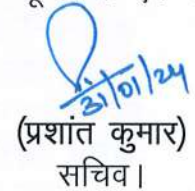 31/01/24
(प्रशांत कुमार)
सचिव।